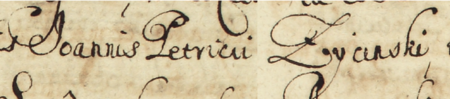 Joannis Petricii Zyianski